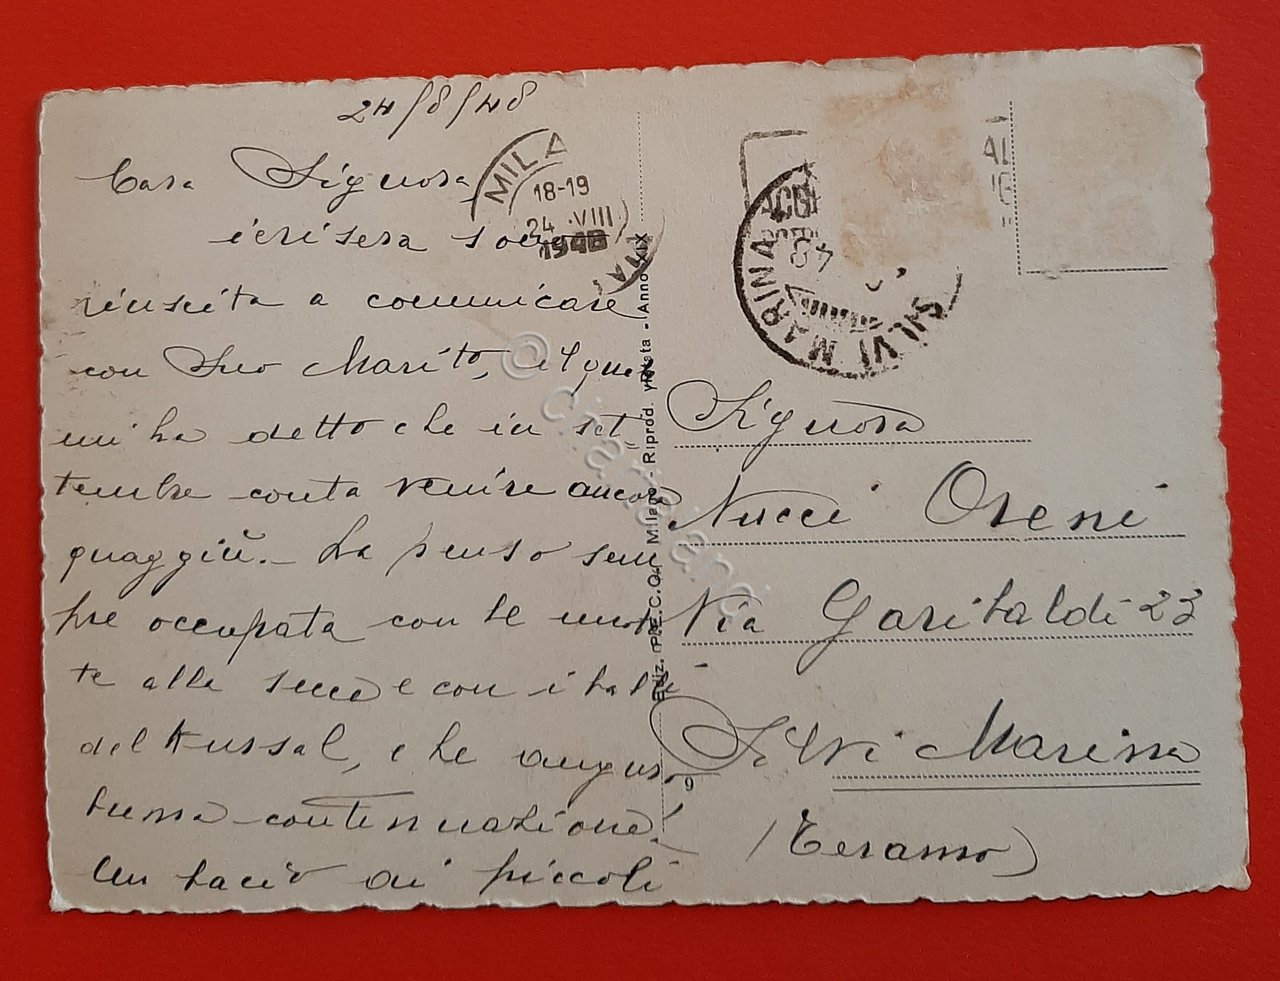 24/8/48
Cara Signora,
ierisera sono
riuscita a comunicare
con Suo Marito, il quale
mi ha detto che in set-
tembre conta venire ancora
quaggiù. - La penso sem
pre occupata con le
te alla sera e con i balli
del Kursal, che auguro
buona continuazione!
Un bacio ai piccoli
MILA
18-19
24 .VIII
1948
Ediz. P.R.E.C.O. Milano - Riprod. vietata - Anno XIX
9
SILVI MARINA
48
Signora
Nucci Oreni
Via Garibaldi 23
Silvi Marina
(Teramo)
© cartoland